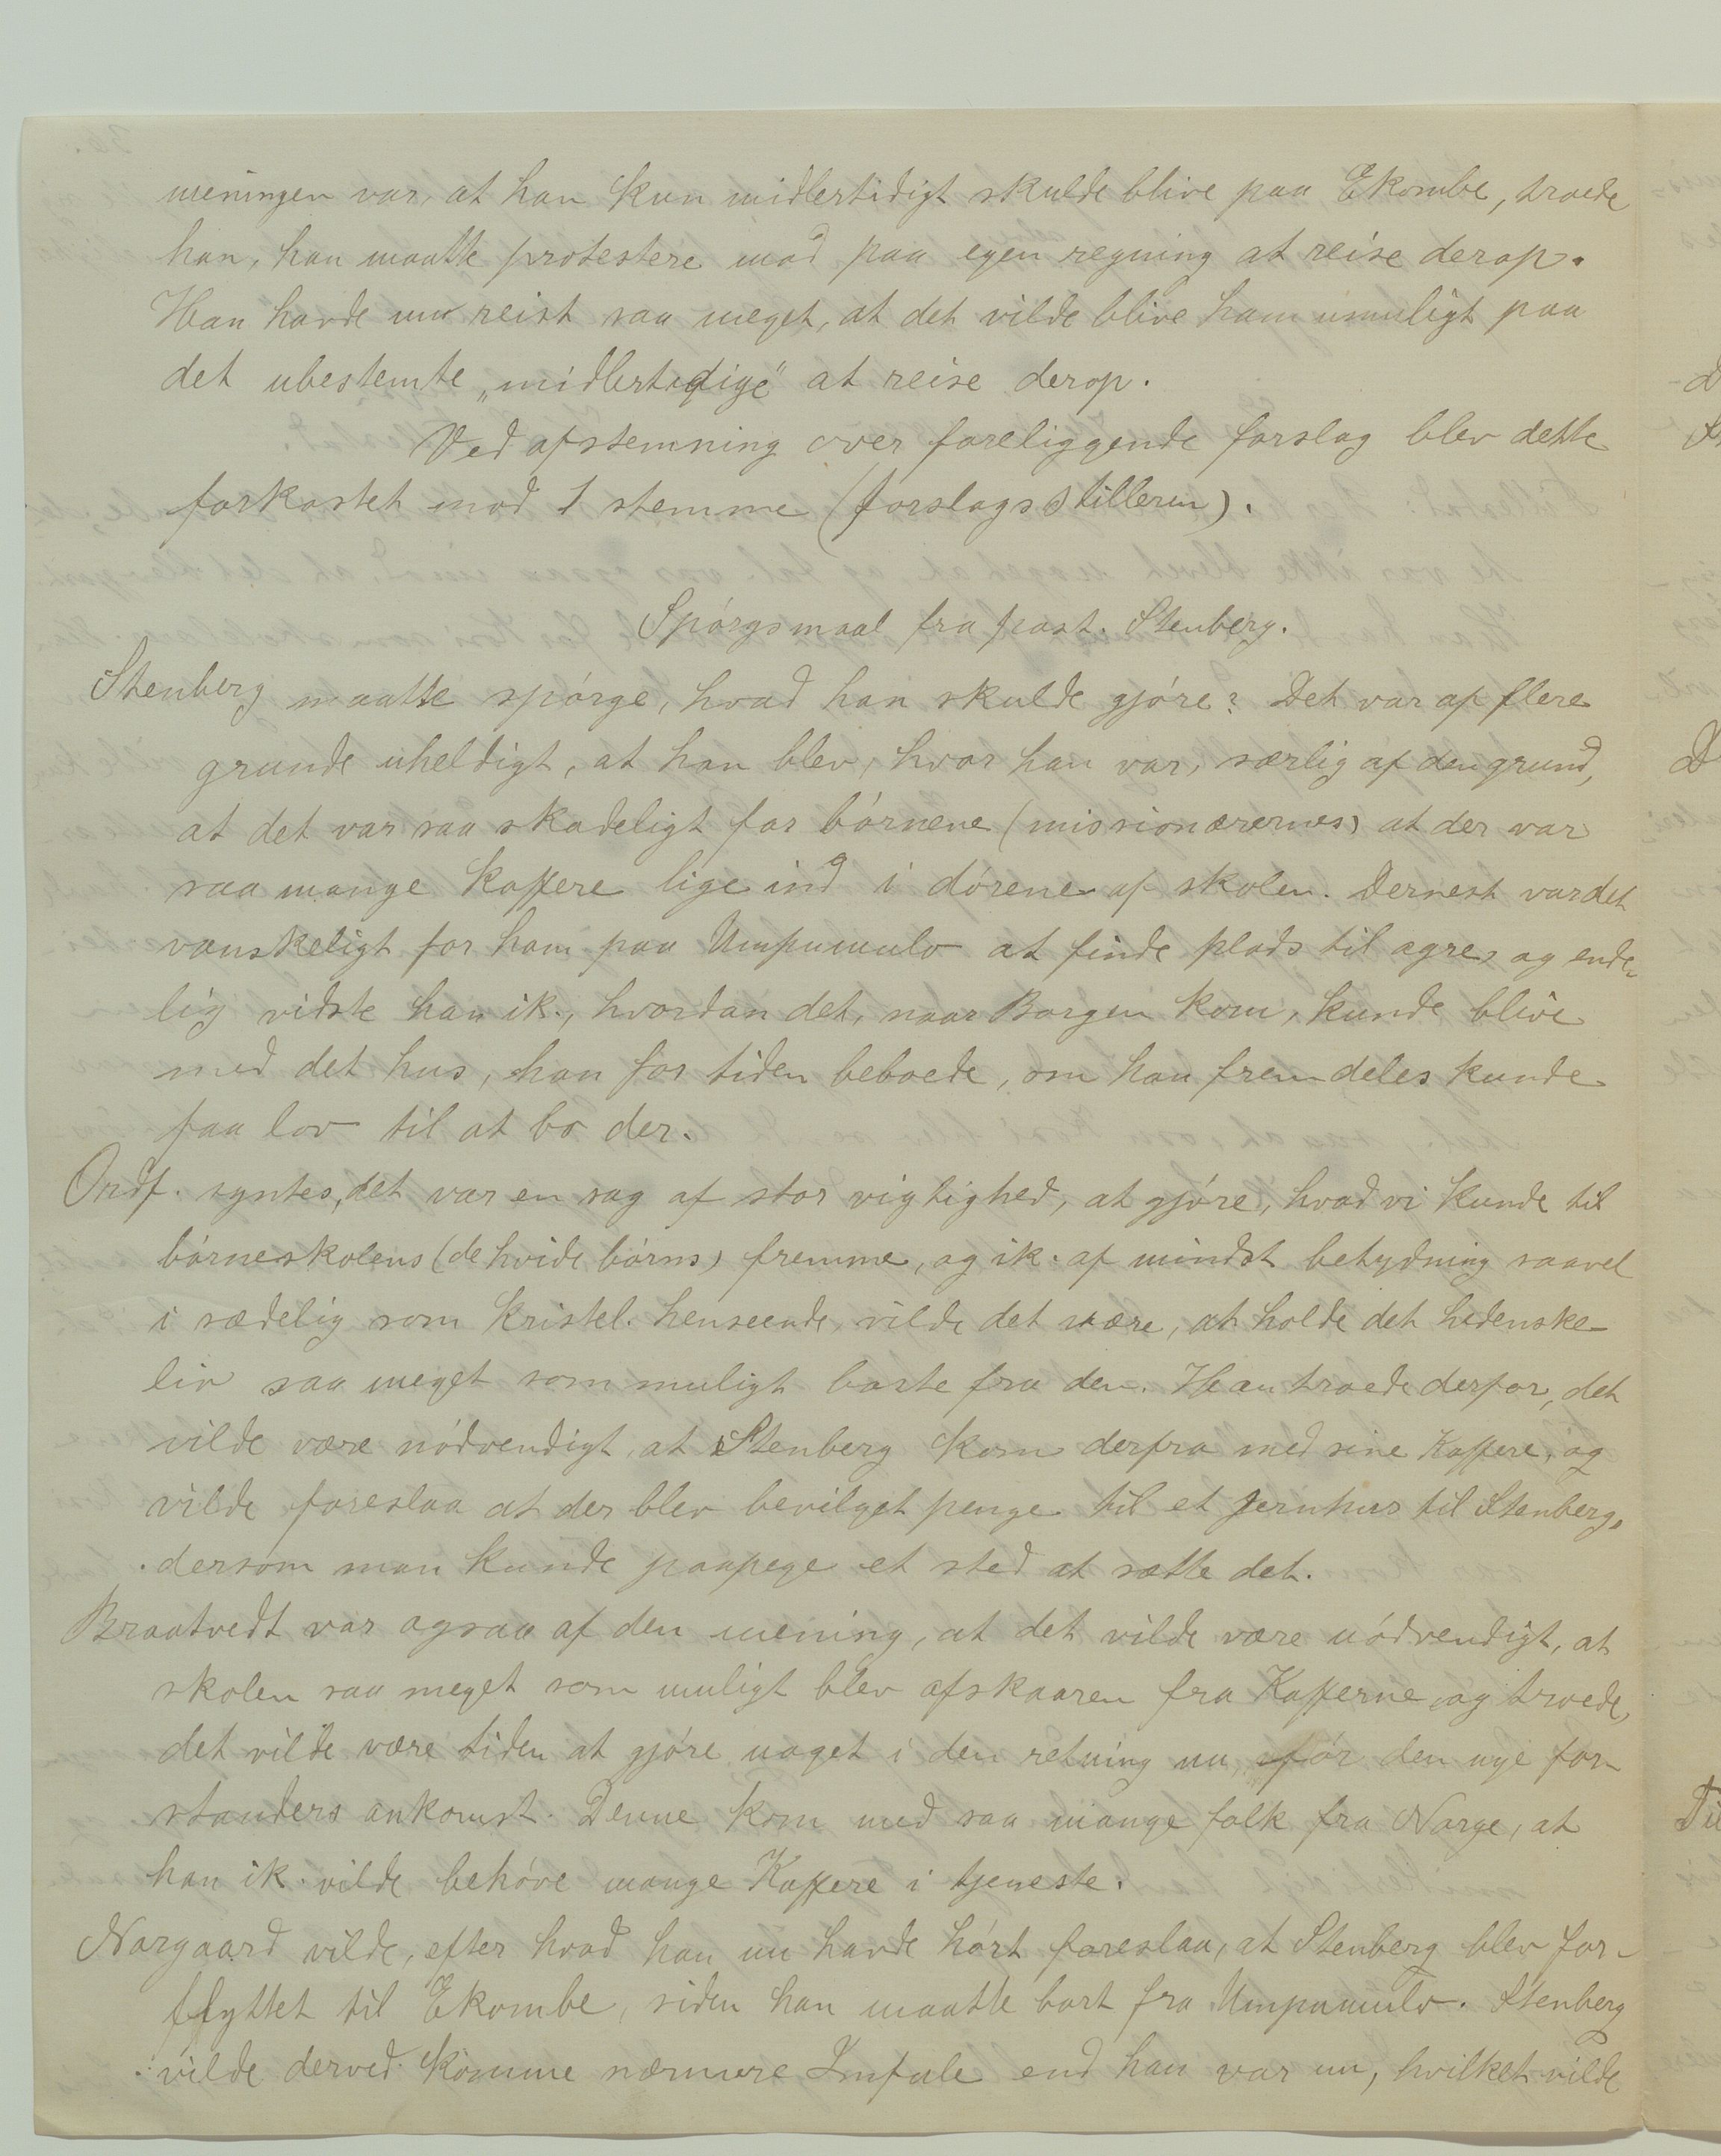 meningen var, at han kun midlertidigt skulde blive paa Ekombe, troede
han, han maatte protestere mod paa egen regning at reise derop.
Han havde nu reist saa meget, at det vilde blive ham umuligt paa
det ubestemte „midlertidige" at reise derop.
Ved afstemning over foreliggende forslag blev dette
forkastet mod 1 stemme (forslagsstilleren).
Spórgsmaal fra past. Stenberg.
Stenberg maatte spórge, hvad han skulde gjóre? Det var af flere
grunde uheldigt, at han blev, hvor han var, særlig af den grund,
at det var saa skadeligt for bórnene (missionærernes) at der var
saa mange kaffere lige ind i dórene af skolen. Dernest var det
vanskeligt for ham paa Umpumulo at finde plads til agre, og ende-
lig vidste han ik., hvordan det, naar Borgen kom, kunde blive
med det hus, han for tiden beboede, om han fremdeles kunde
faa lov til at bo der.
Ordf. syntes, det var en sag af stor vigtighed, at gjóre, hvad vi kunde til
bórneskolens (de hvide bórns) fremme, og ik. af mindst betydning saavel
i sædelig som kristel. henseende, vilde det være, at holde det hedenske
liv saa meget som muligt borte fra den. Han troede derfor, det
vilde være nódvendigt, at Stenberg kom derfra med sine Kaffere, og
vilde foreslaa at der blev bevilget penge til et jernhus til Stenberg,
dersom man kunde paapege et sted at sætte det.
Braatvedt var ogsaa af den mening, at det vilde være nódvendigt, at
skolen saa meget som muligt blev afskaaren fra Kafferne og troede,
det vilde være tiden at gjóre noget i den retning nu fór den nye for-
standers ankomst. Denne kom med saa mange folk fra Norge, at
han ik. vilde behóve mange Kaffere i tjeneste.
Norgaard vilde, efter hvad han nu havde hórt foreslaa, at Stenberg blev for-
flyttet til Ekombe, siden han maatte bort fra Umpumulo. Stenberg
vilde derved komme nærmere Imfule end han var nu, hvilket vilde